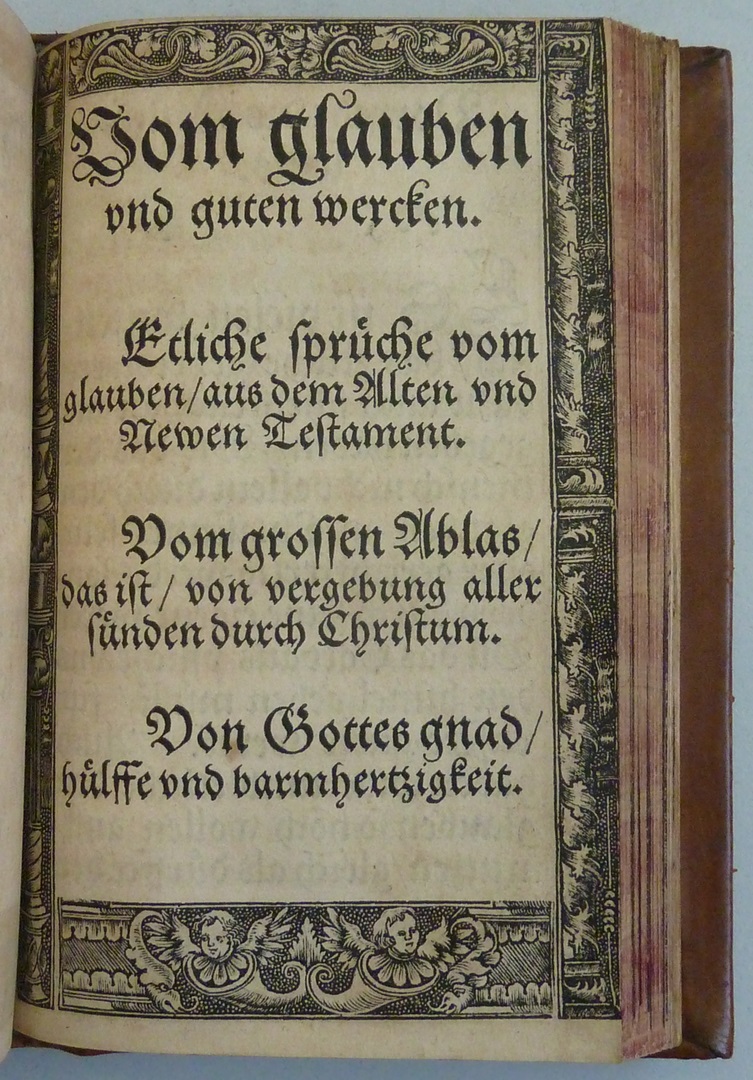 Vom glauben
vnd guten wercken.
Etliche sprüche vom
glauben/aus dem Alten vnd
Newen Testament.
Vom grossen Ablas/
das ist / von vergebung aller
sünden durch Christum.
Von Gottes gnad/
hülffe vnd barmhertzigkeit.